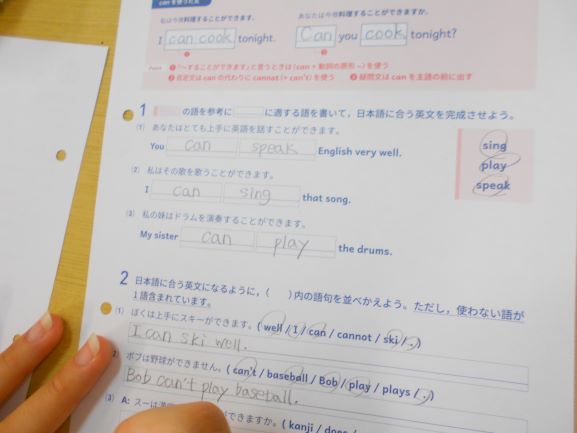 can を使った文
私は今夜料理することができます。 あなたは今夜料理することができますか。
I can cook tonight. Can you cook tonight?
❶ ❸
Point ❶「〜することができます」と言うときは〈can + 動詞の原形 ~〉を使う
❷ 否定文は can の代わりに cannot (= can't) を使う ❸ 疑問文は can を主語の前に出す
1 の語を参考に に適する語を書いて，日本語に合う英文を完成させよう。
(1) あなたはとても上手に英語を話すことができます。
You can speak English very well.
sing
play
speak
(2) 私はその歌を歌うことができます。
I can sing that song.
(3) 私の妹はドラムを演奏することができます。
My sister can play the drums.
2 日本語に合う英文になるように，( )内の語句を並べかえよう。ただし，使わない語が
1語含まれています。
(1) ぼくは上手にスキーができます。( well / I / can / cannot / ski / . )
I can ski well.
2 ボブは野球ができません。( can't / baseball / Bob / play / plays / . )
Bob can't play baseball.
(3) A: スーは ができますか。( kanji /